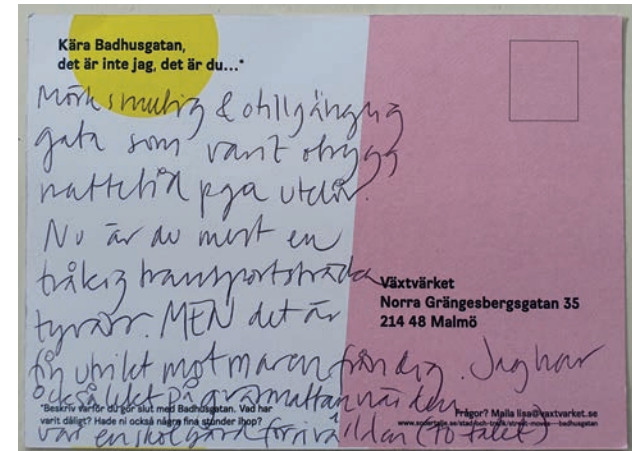 Kära Badhusgatan,
det är inte jag, det är du...*
Mörk smutsig & otillgänglig
gata som varit otrygg
nattetid pga
Nu är du mest en
tråkig transportsträcka
tyvärr. MEN det är
fin utsikt mot maren från dig. Jag har
också lekt på gräsmattan när den
var en skolgård (70 talet)
Växtvärket
Norra Grängesbergsgatan 35
214 48 Malmö
*Beskriv varför du gör slut med Badhusgatan. Vad har
varit dåligt? Hade ni också några fina stunder ihop?
Frågor? Maila lisa@vaxtvarket.se